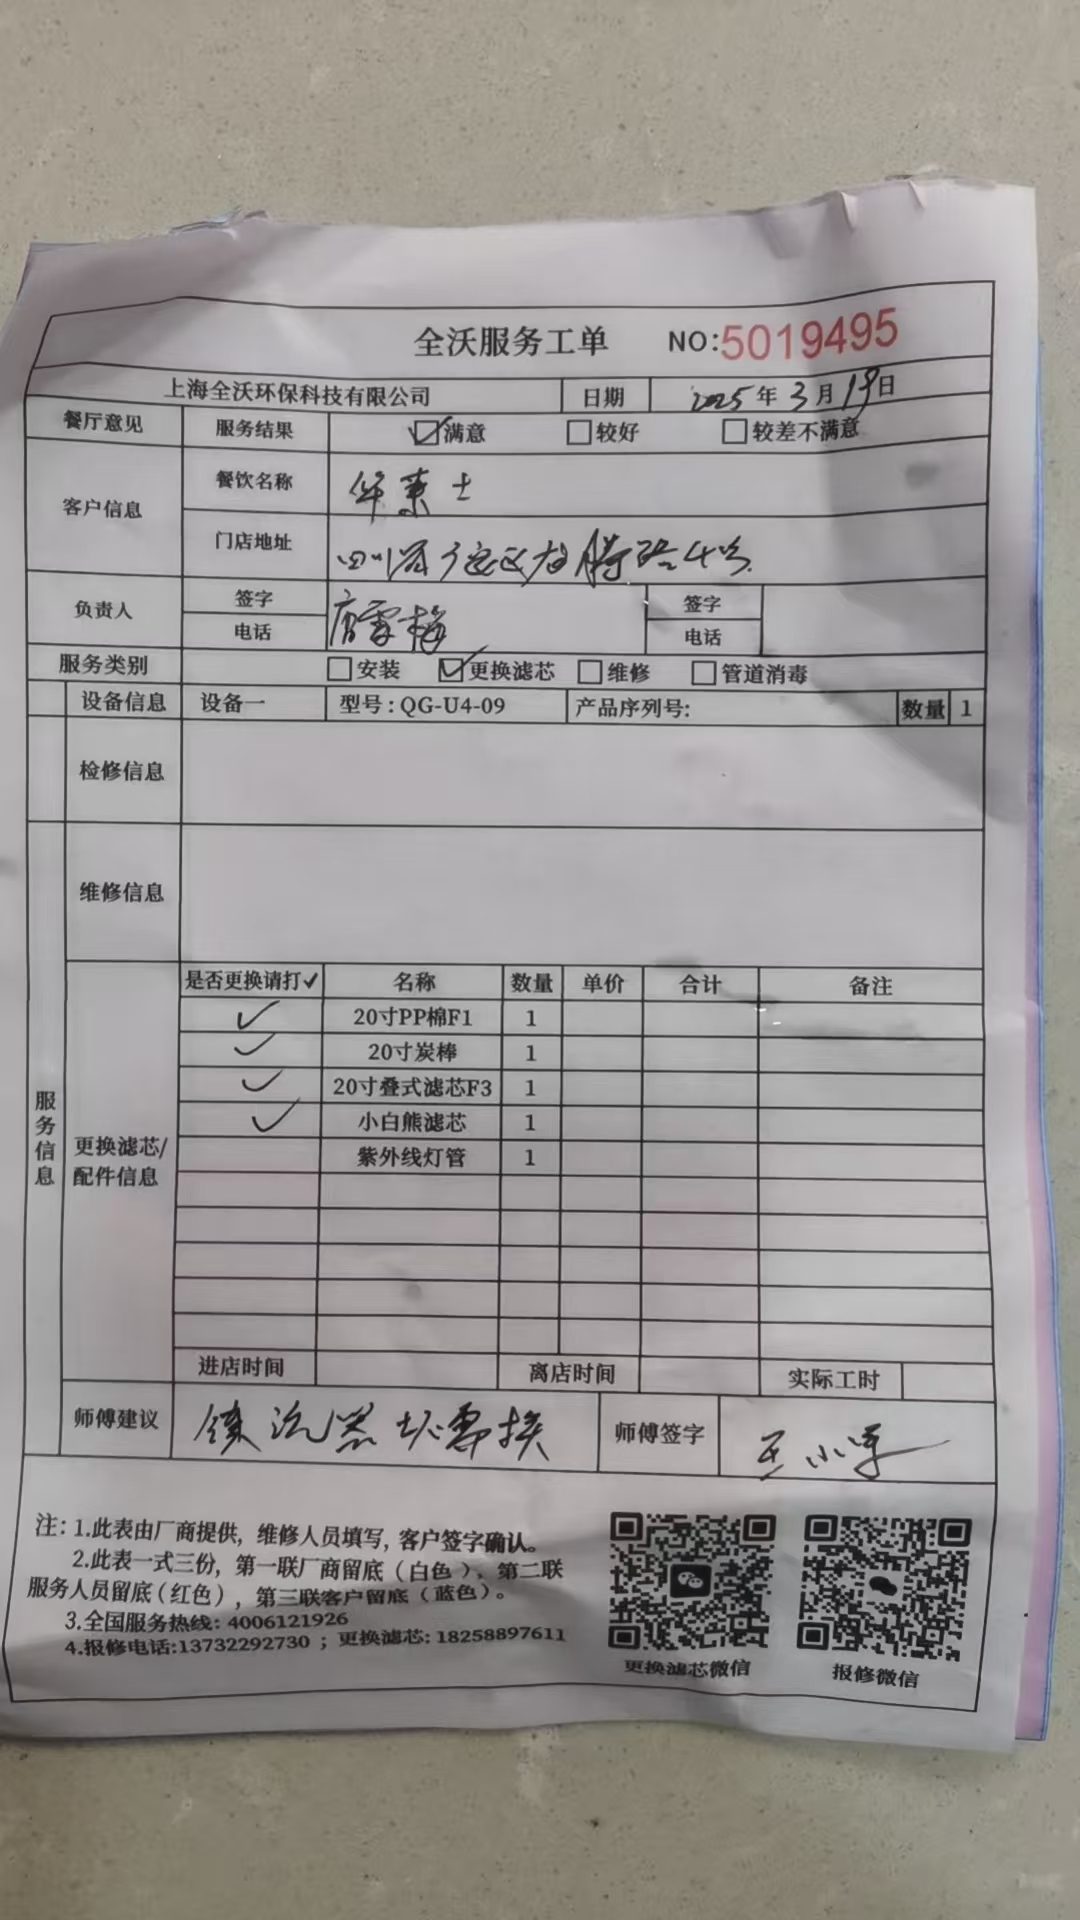 全沃服务工单 NO:5019495
上海全沃环保科技有限公司 日期 2025年3月19日
餐厅意见 服务结果 ☑满意 □较好 □较差不满意
客户信息 餐饮名称 华莱士
门店地址 四川省
负责人 签字 唐雪梅 签字
电话 电话
服务类别 □安装 ☑更换滤芯 □维修 □管道消毒
设备信息 设备一 型号:QG-U4-09 产品序列号: 数量 1
检修信息
维修信息
服务信息
更换滤芯/配件信息
是否更换请打✓ 名称 数量 单价 合计 备注
✓ 20寸PP棉F1 1
✓ 20寸炭棒 1
✓ 20寸叠式滤芯F3 1
✓ 小白熊滤芯 1
紫外线灯管 1
进店时间 离店时间 实际工时
师傅建议 镇流器坏需换 师傅签字 王小军
注: 1.此表由厂商提供, 维修人员填写, 客户签字确认。
2.此表一式三份, 第一联厂商留底(白色), 第二联
服务人员留底(红色), 第三联客户留底(蓝色)。
3.全国服务热线: 4006121926
4.报修电话:13732292730 ; 更换滤芯: 18258897611
更换滤芯微信 报修微信